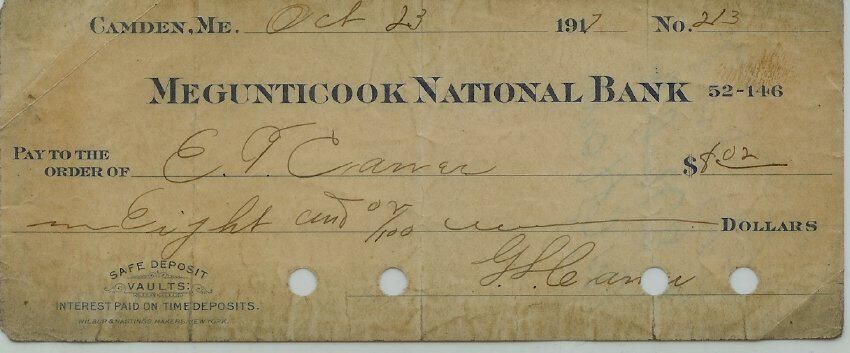 CAMDEN, ME. Oct 23 1917 No. 213
MEGUNTICOOK NATIONAL BANK 52-146
PAY TO THE
ORDER OF E. T. Cramer $8.02
Eight and 02/100 DOLLARS
G. S. Cramer
SAFE DEPOSIT
VAULTS:
INTEREST PAID ON TIME DEPOSITS.
WILBUR & HASTINGS, MAKERS, NEW YORK.